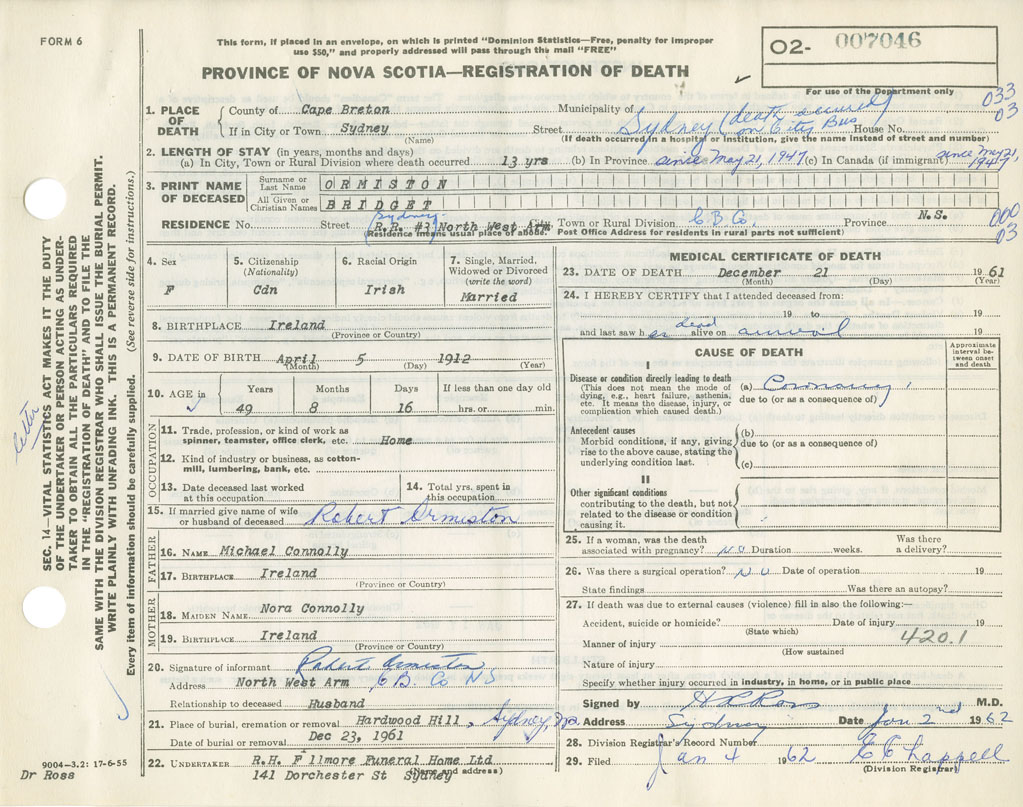 FORM 6
This form, if placed in an envelope, on which is printed "Dominion Statistics—Free, penalty for improper
use $50," and properly addressed will pass through the mail "FREE"
PROVINCE OF NOVA SCOTIA—REGISTRATION OF DEATH
02- 007046
For use of the Department only
033
03
1. PLACE OF DEATH
County of Cape Breton Municipality of
If in City or Town Sydney (Name) Street Sydney (death occurred on City Bus House No.
(If death occurred in a hospital or institution, give the name instead of street and number)
2. LENGTH OF STAY (in years, months and days)
(a) In City, Town or Rural Division where death occurred 13 yrs (b) In Province since May 21, 1947 (c) In Canada (if immigrant) since May 21, 1947
3. PRINT NAME OF DECEASED
Surname or Last Name ORMISTON
All Given or Christian Names BRIDGET
RESIDENCE No. Street (Sydney R.R. #3) North West Arm City, Town or Rural Division C B Co, Province N.S.
000
03
(Residence means usual place of abode. Post Office Address for residents in rural parts not sufficient)
4. Sex
F
5. Citizenship
(Nationality)
Cdn
6. Racial Origin
Irish
7. Single, Married,
Widowed or Divorced
(write the word)
Married
8. BIRTHPLACE Ireland
(Province or Country)
9. DATE OF BIRTH April 5 1912
(Month) (Day) (Year)
10. AGE in
Years Months Days If less than one day old
49 8 16 hrs. or min.
OCCUPATION
11. Trade, profession, or kind of work as
spinner, teamster, office clerk, etc. Home
12. Kind of industry or business, as cotton-
mill, lumbering, bank, etc.
13. Date deceased last worked
at this occupation
14. Total yrs. spent in
this occupation
15. If married give name of wife
or husband of deceased Robert Ormiston
FATHER
16. NAME Michael Connolly
17. BIRTHPLACE Ireland
(Province or Country)
MOTHER
18. MAIDEN NAME Nora Connolly
19. BIRTHPLACE Ireland
(Province or Country)
20. Signature of informant Robert Ormiston
Address North West Arm C B. Co N S
Relationship to deceased Husband
21. Place of burial, cremation or removal Hardwood Hill, Sydney, N.S.
Date of burial or removal Dec 23, 1961
22. UNDERTAKER R.H. Fillmore Funeral Home Ltd
141 Dorchester St Sydney
(Name and address)
MEDICAL CERTIFICATE OF DEATH
23. DATE OF DEATH December 21 1961
(Month) (Day) (Year)
24. I HEREBY CERTIFY that I attended deceased from:
19 to 19
and last saw her dead alive on arrival 19
CAUSE OF DEATH
Approximate
interval be-
tween onset
and death
I
Disease or condition directly leading to death
(This does not mean the mode of
dying, e.g., heart failure, asthenia,
etc. It means the disease, injury, or
complication which caused death.)
(a) Coronary
due to (or as a consequence of)
Antecedent causes
Morbid conditions, if any, giving
rise to the above cause, stating the
underlying condition last.
(b)
due to (or as a consequence of)
(c)
II
Other significant conditions
contributing to the death, but not
related to the disease or condition
causing it.
25. If a woman, was the death
associated with pregnancy? NO Duration weeks. Was there
a delivery?
26. Was there a surgical operation? NO Date of operation 19
State findings Was there an autopsy?
27. If death was due to external causes (violence) fill in also the following:—
Accident, suicide or homicide? Date of injury 19
(State which)
420.1
Manner of injury
(How sustained
Nature of injury
Specify whether injury occurred in industry, in home, or in public place
Signed by H R Ross M.D.
Address Sydney Date Jan 2nd 1962
28. Division Registrar's Record Number
29. Filed Jan 4 1962 C C Chappell
(Division Registrar)
SEC. 14—VITAL STATISTICS ACT MAKES IT THE DUTY
OF THE UNDERTAKER OR PERSON ACTING AS UNDER-
TAKER TO OBTAIN ALL THE PARTICULARS REQUIRED
IN THE "REGISTRATION OF DEATH" AND TO FILE THE
SAME WITH THE DIVISION REGISTRAR WHO SHALL ISSUE THE BURIAL PERMIT.
WRITE PLAINLY WITH UNFADING INK. THIS IS A PERMANENT RECORD.
Every item of information should be carefully supplied. (See reverse side for instructions.)
letter
9004—3.2: 17-6-55
Dr Ross